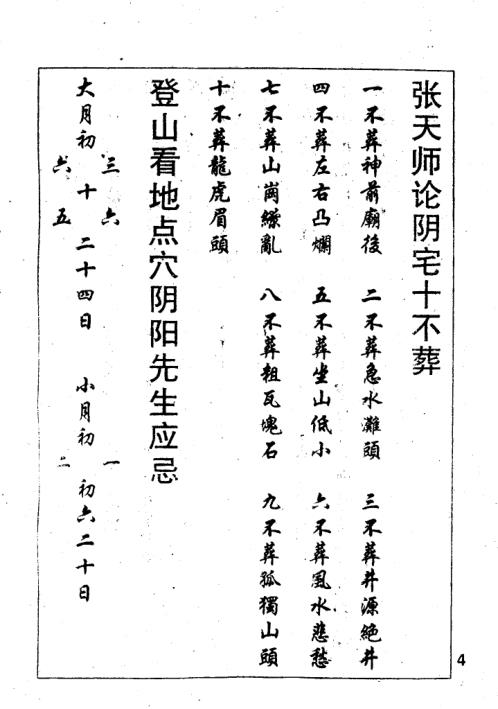 张天师论阴宅十不葬
一不葬神前廟後 二不葬急水灘頭 三不葬井源絶井
四不葬左右凸爛 五不葬坐山低小 六不葬風水悲愁
七不葬山崗繚亂 八不葬粗瓦塊石 九不葬孤獨山頭
十不葬龍虎眉頭
登山看地点穴阴阳先生应忌
三 六 一
大月初 十 二十四日 小月初 初六二十日
六 五 二
4